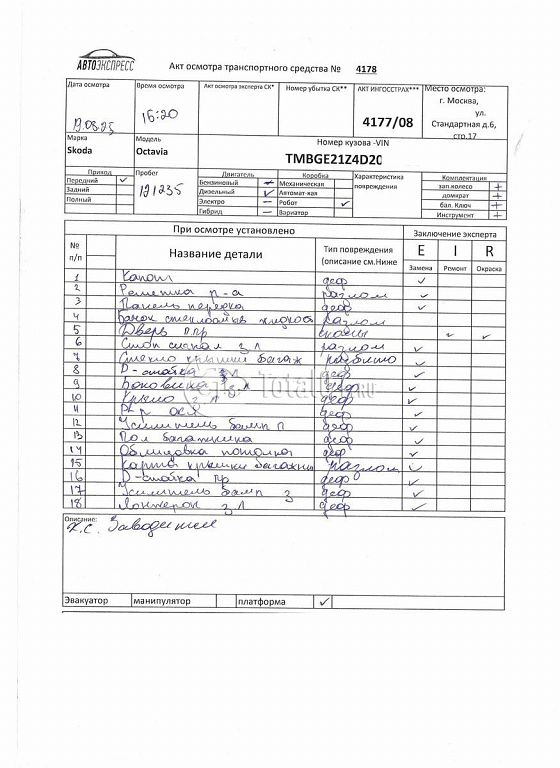 АВТОЭКСПРЕСС
Акт осмотра транспортного средства № 4178
Дата осмотра
Время осмотра
Акт осмотра эксперта СК*
Номер убытка СК**
АКТ ИНГОССТРАХ***
Место осмотра:
г. Москва,
ул.
Стандартная д.6,
стр.17
16:20
4177/08
Марка
Модель
Номер кузова -VIN
Skoda
Octavia
TMBGE21Z4D20
Приход
Пробег
Двигатель
Коробка
Характеристика повреждения
Комплектация
Передний ✓
Бензиновый –
Механическая
зап.колесо +
Задний
191235
Дизельный ✓
Автомат-кая
домкрат +
Полный
Электро –
Робот ✓
бал. Ключ +
Гибрид –
Вариатор
Инструмент +
При осмотре установлено
Заключение эксперта
№ п/п
Название детали
Тип повреждения (описание см.Ниже
E I R
Замена Ремонт Окраска
1 Капот деф ✓
2 Решетка р-а разлом ✓
3 Панель передка деф ✓
4 Бачок жидкос разлом
5 Дверь п.пр ✓ ✓
6 Стоп сигнал з л разлом ✓
7 Стекло крышки багаж разбито ✓
8 D-стойка деф ✓
9 Боковина з л деф ✓
10 Крыло з л деф ✓
11 деф ✓
12 Усилитель бамп п деф ✓
13 Пол багажника деф ✓
14 Облицовка потолка деф ✓
15 Карта крышки багажн разлом ✓
16 D-стойка пр деф ✓
17 Усилитель бамп з деф ✓
18 Лонжерон з.л деф ✓
TotalCar.RU
Описание:
Х.С. Заводится
Эвакуатор манипулятор платформа ✓